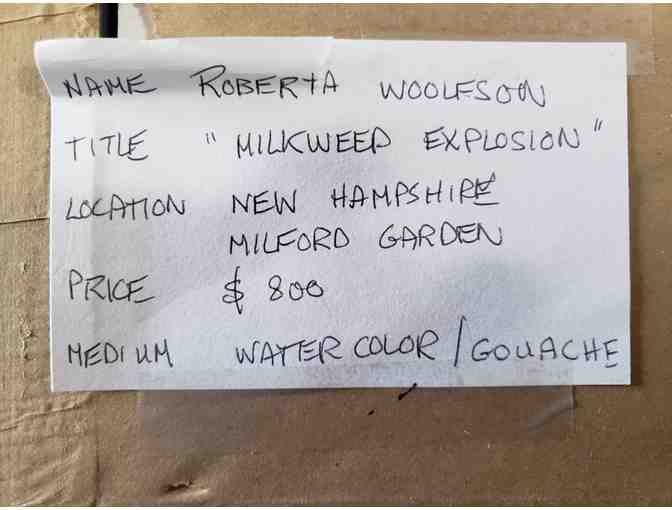 NAME ROBERTA WOOLFSON
TITLE "MILKWEED EXPLOSION"
LOCATION NEW HAMPSHIRE
MILFORD GARDEN
PRICE $ 800
MEDIUM WATERCOLOR/GOUACHE